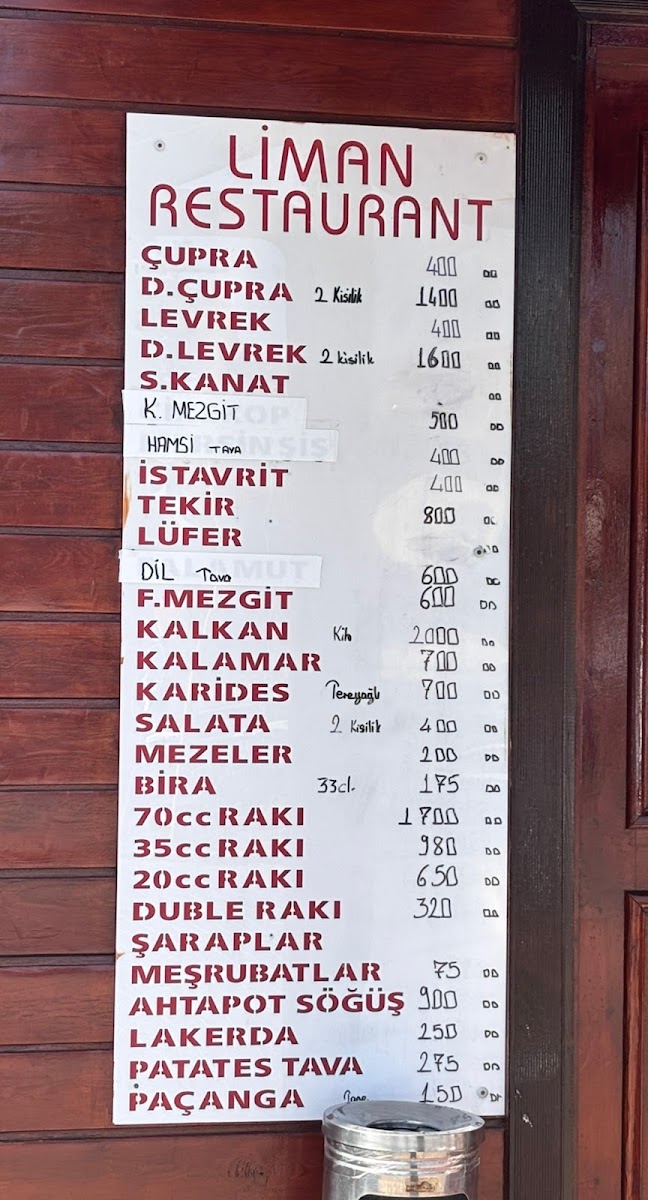 LİMAN
RESTAURANT
ÇUPRA 400 00
D.ÇUPRA 2 Kisilik 1400 00
LEVREK 400 00
D.LEVREK 2 kisilik 1600 00
S.KANAT 00
K. MEZGİT 500 00
HAMSİ TAVA 400 00
İSTAVRİT 400 00
TEKİR 800 00
LÜFER 00
DİL Tava 600 00
F.MEZGİT 600 00
KALKAN Kilo 2000 00
KALAMAR 700 00
KARİDES Tereyağlı 700 00
SALATA 2 Kisilik 400 00
MEZELER 200 00
BİRA 33cl. 175 00
70cc RAKI 1700 00
35cc RAKI 980 00
20cc RAKI 650 00
DUBLE RAKI 320 00
ŞARAPLAR
MEŞRUBATLAR 75 00
AHTAPOT SÖĞÜŞ 900 00
LAKERDA 250 00
PATATES TAVA 275 00
PAÇANGA 150 00